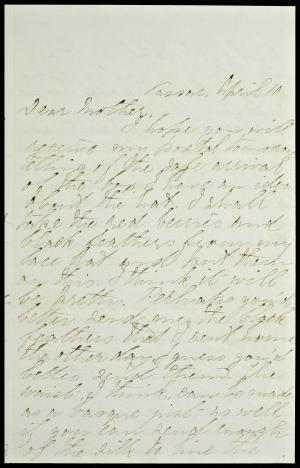 Vassar, April 10
Dear Mother,
I hope you will
receive my postal
telling of the safe arrival
of the box. I have an idea
about the hat. I shall
take the red berries and
black feathers from my
lace hat and put them
on this. I think it will
be pretty. Perhaps you'd
better send me the black
feathers that I sent home
the other day, guess you'd
better send them. The
waist, I think, can be made
as a basque just as well
if you can send enough
of the silk to line the